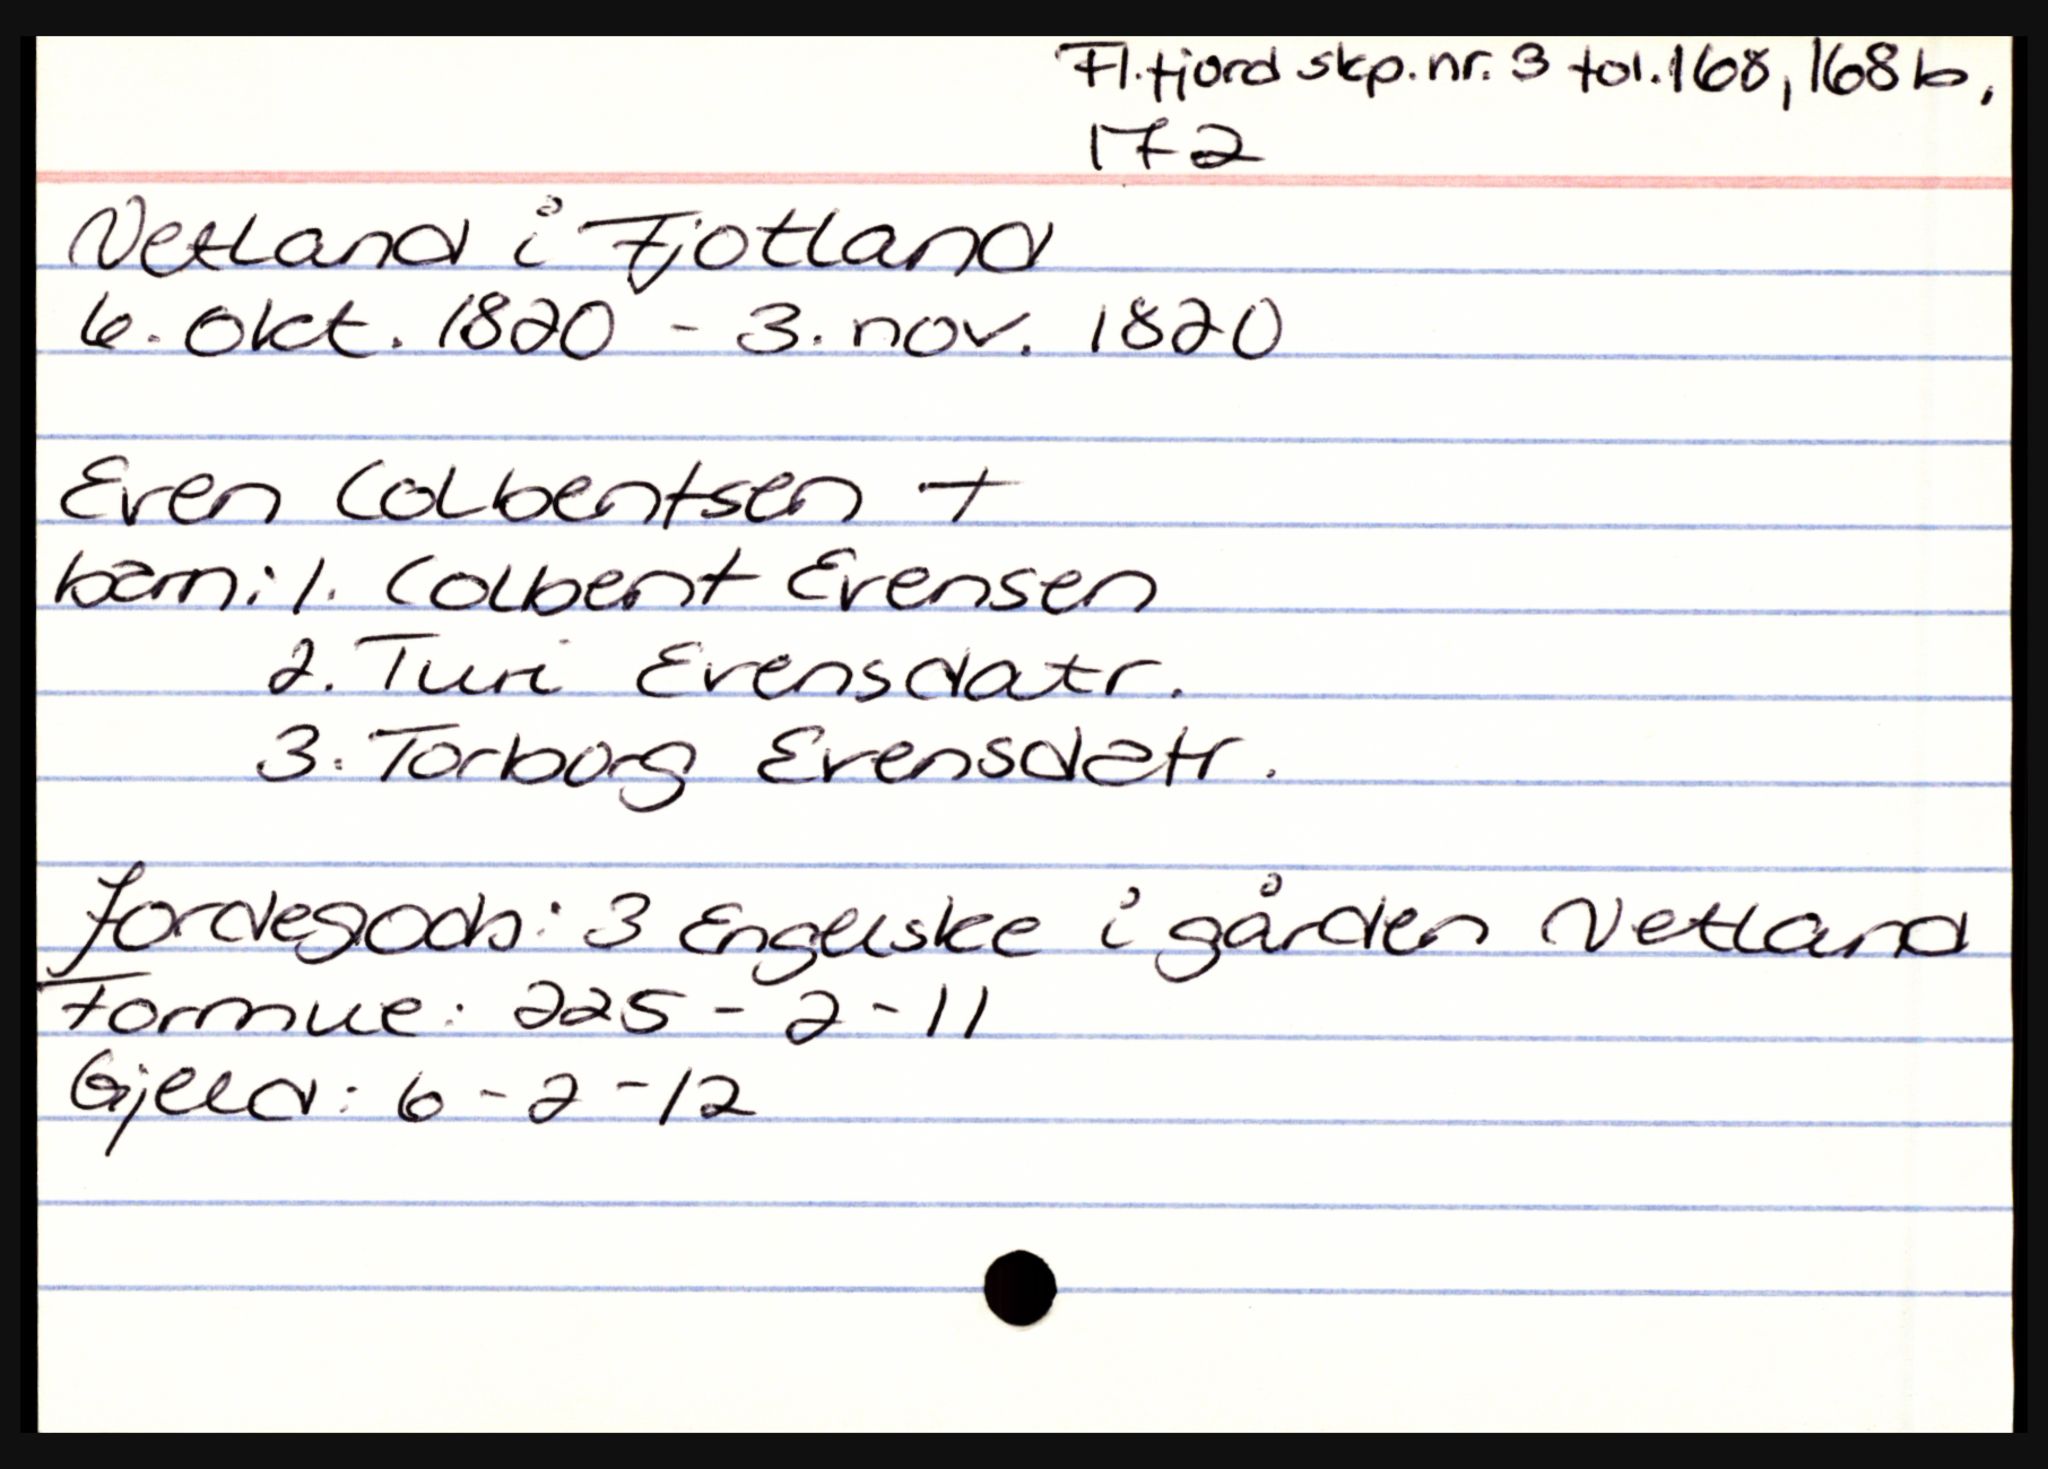 Fl.fjord skp.nr. 3 fol. 168, 168b,
172
Netland i Fjotland
6. Okt. 1820 - 3. nov. 1820
Even Colbentsen +
barn: 1. Colbent Evensen
2. Turi Evensdatr.
3. Torborg Evensdatr.
Jordegods: 3 Engelske i gården Netland
Formue: 225 - 2 - 11
Gjeld: 6 - 2 - 12